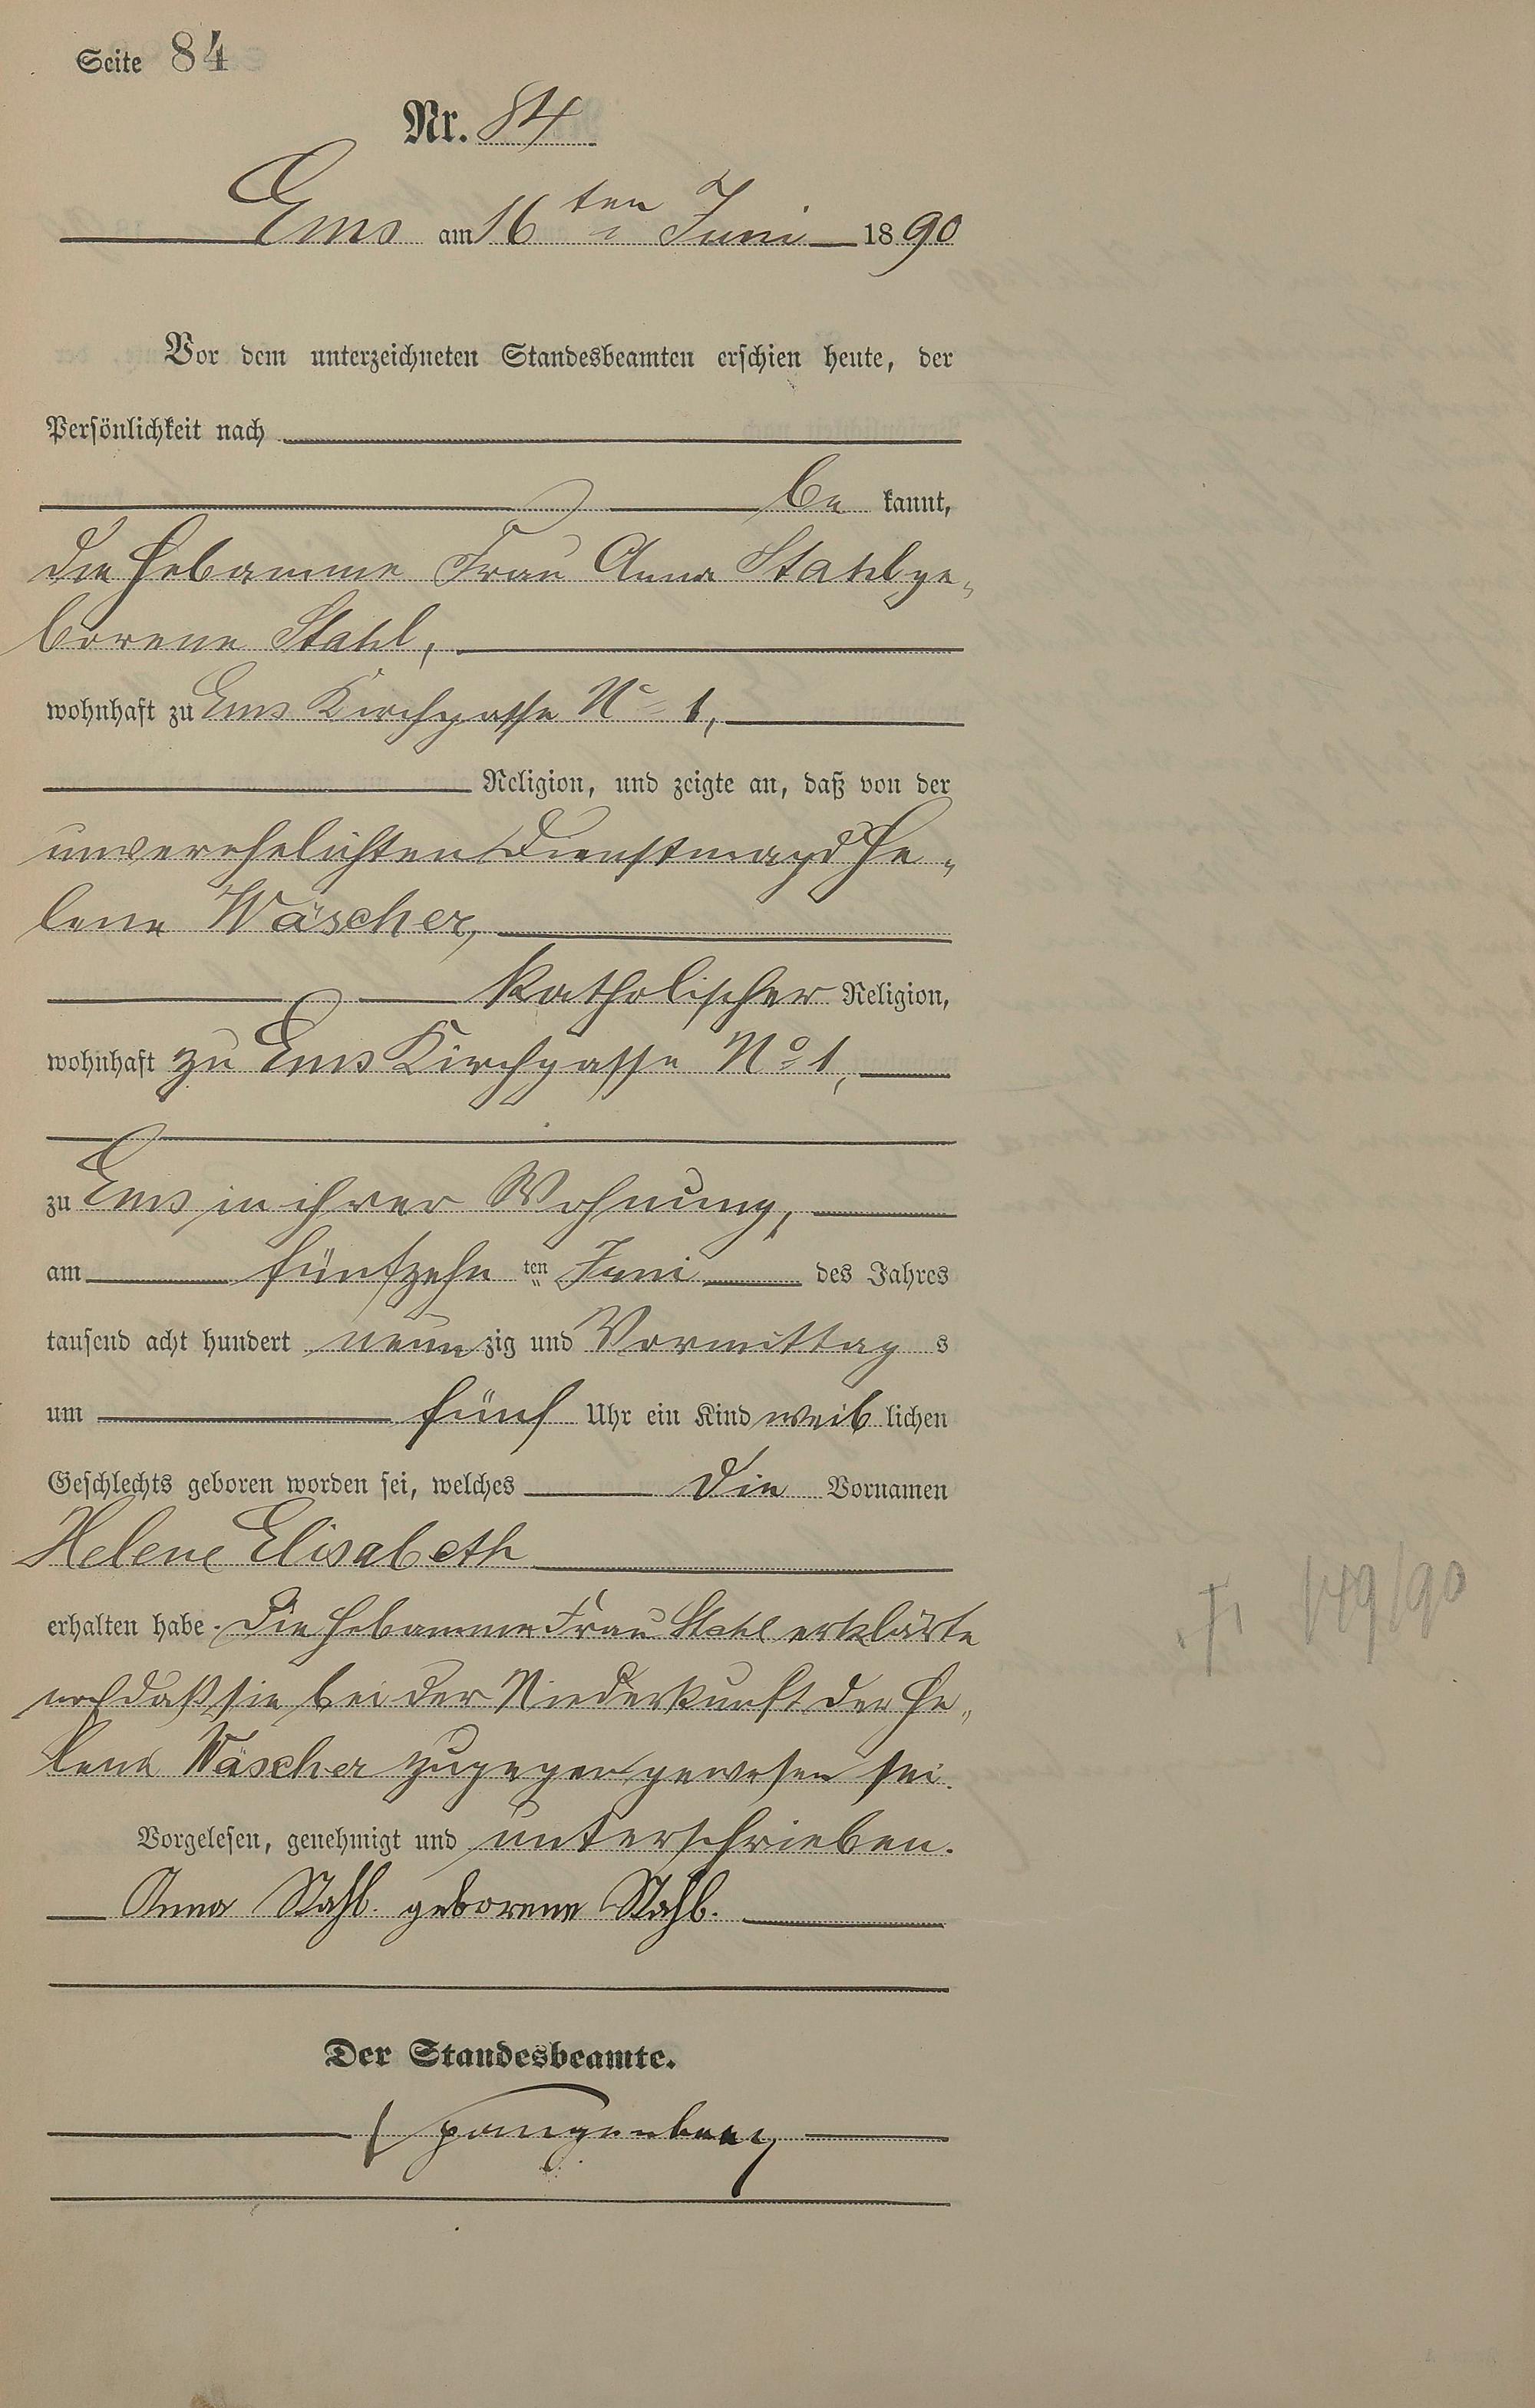 Seite 84
Nr. 84
Ems am 16ten Juni 1890
Vor dem unterzeichneten Standesbeamten erschien heute, der
Persönlichkeit nach
be kannt,
die Hebamme Frau Anna Stahl ge„
borene Stahl,
wohnhaft zu Ems Kirchgasse No 1,
Religion, und zeigte an, daß von der
unverehelichten Dienstmagd He„
lene Wäscher,
katholischer Religion,
wohnhaft zu Ems Kirchgasse No 1,
zu Ems in ihrer Wohnung,
am fünfzehn ten Juni des Jahres
tausend acht hundert neun zig und Vormittag s
um fünf Uhr ein Kind weib lichen
Geschlechts geboren worden sei, welches die Vornamen
Helene Elisabeth
erhalten habe. Die Hebamme Frau Stahl erklärte
noch daß sie bei der Niederkunft der He„
lene Wäscher zugegen gewesen sei.
Vorgelesen, genehmigt und unterschrieben.
Anna Stahl. geborene Stahl.
Der Standesbeamte.
Spangenberg
† 149/90